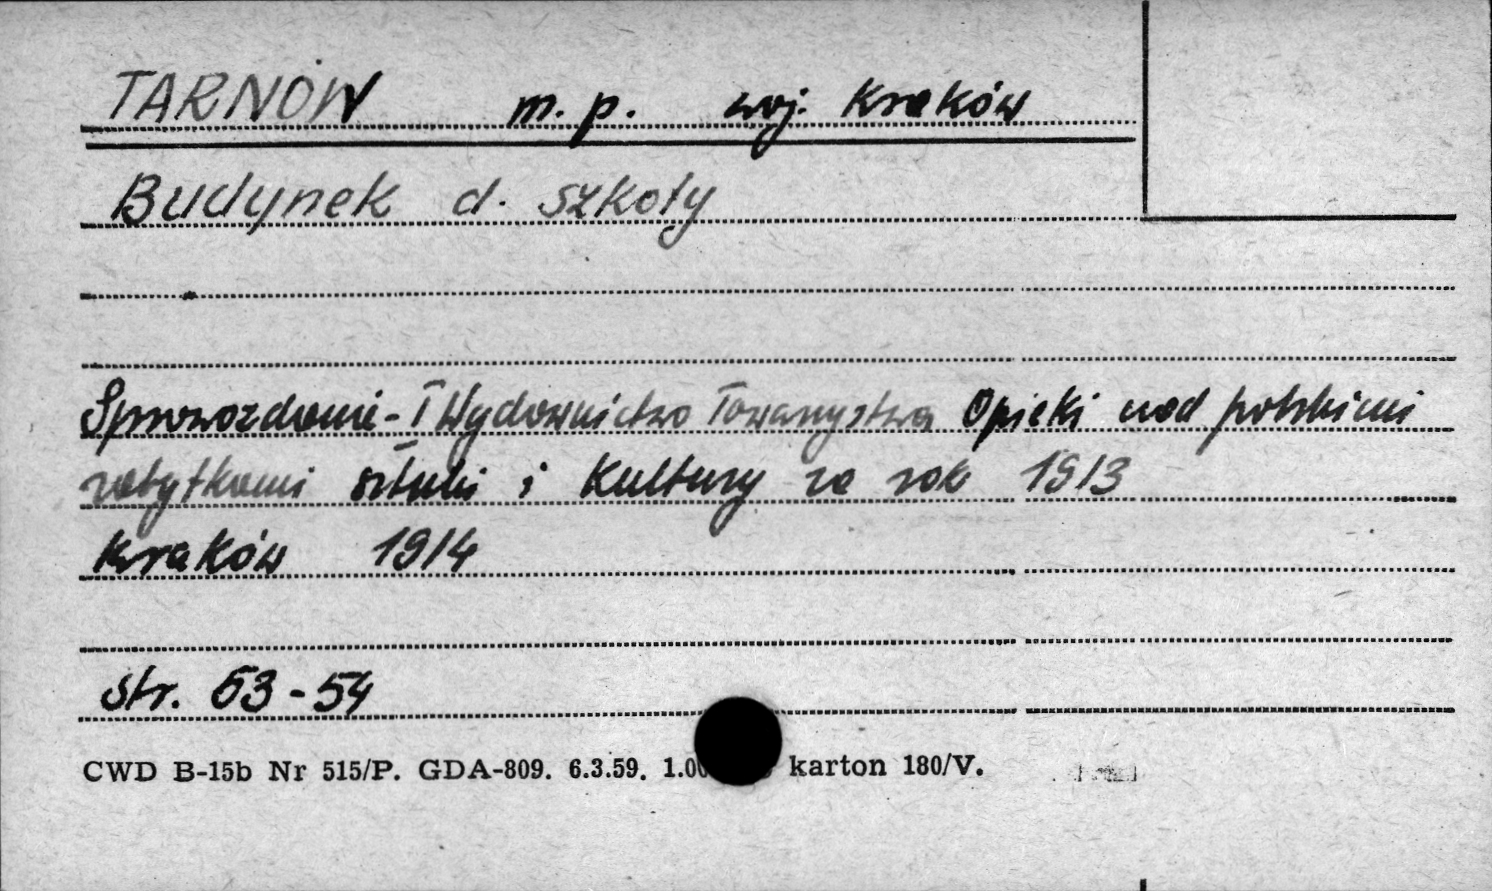 TARNÓW m. p. woj. Kraków
Budynek d. szkoły
Sprawozdanie - I Wydawnictwo Towarzystwa Opieki nad polskimi
zabytkami sztuki i Kultury za rok 1913
Kraków 1914
str. 53-54
CWD B-15b Nr 515/P. GDA-809. 6.3.59. karton 180/V.